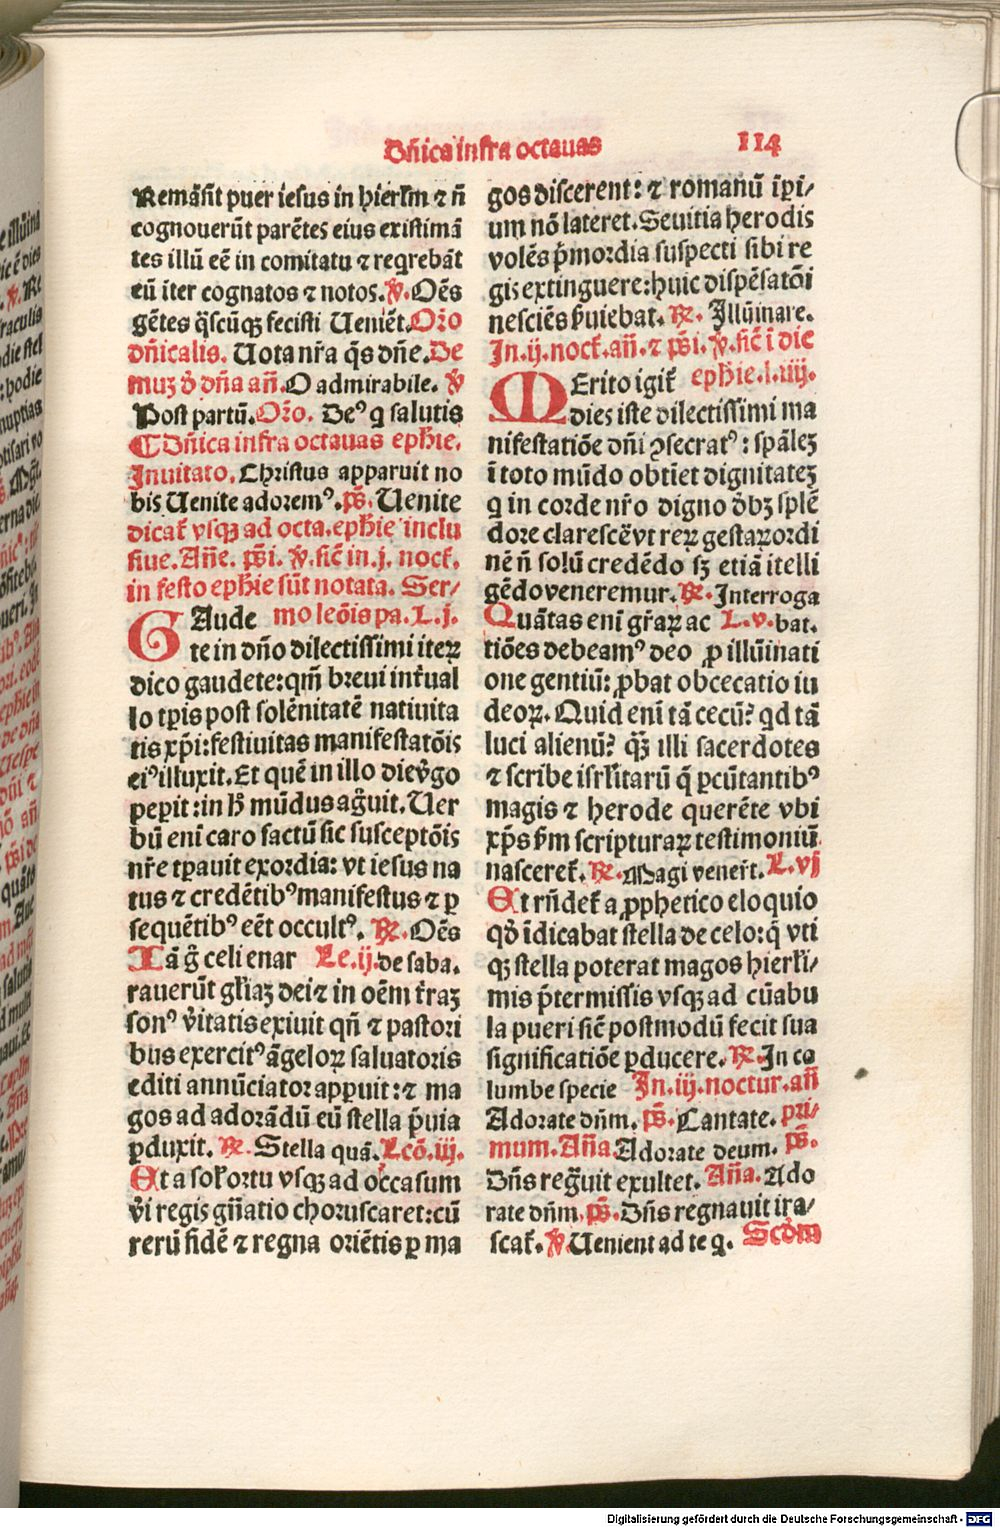 Dñica infra octauas
114
Remãsit puer iesus in hierlm ⁊ ñ
cognouerũt parẽtes eius existimã
tes illũ eẽ in comitatu ⁊ reqrebãt
eũ iter cognatos ⁊ notos. ℣. Oẽs
gẽtes q̃scũqꝫ fecisti Ueniẽt. Orõ
dñicalis. Uota nr̃a q̃s dñe. De
muꝫ ꝺ̉ dña añ. O admirabile. ℣
Post partũ. Orõ. Deꝰ q salutis
¶ Dñica infra octauas ephie.
Inuitato. Christus apparuit no
bis Uenite adoremꝰ. ps̃. Uenite
dicat̃ vsqꝫ ad octa. ephie inclu
siue. Añe. ps̃i. ℣. sic̃ in .j. noct̃.
in festo ephie sũt notata. Ser/
GAude mo leõis pa. L. j.
te in dño dilectissimi iteꝝ
dico gaudete: qm̃ breui int̃ual
lo tꝑis post solẽnitatẽ natiuita
tis xp̃i: festiuitas manifestatõis
eiꝰ illuxit. Et quẽ in illo die v̉go
peꝑit: in h̃ mũdus ag̃uit. Uer
bũ eni caro factũ sic susceptõis
nr̃e tꝑauit exordia: vt iesus na
tus ⁊ credẽtibꝰ manifestus ⁊ ꝑ
sequẽtibꝰ eẽt occultꝰ. ℟. Oẽs
Iã g̃ celi enar Le. ij. de saba.
rauerũt gl̃iaꝫ dei ⁊ in oẽm t̃raꝫ
sonꝰ v̉itatis exiuit qñ ⁊ pastori
bus exercitꝰ ãgeloꝝ saluatoris
editi annũciator apꝑuit: ⁊ ma
gos ad adorãdũ eũ stella p̃uia
ꝑduxit. ℟. Stella quã. Lcõ. iij.
Et a sol̃ ortu vsqꝫ ad occasum
v̉i regis gñatio choruscaret: cũ
rerũ fidẽ ⁊ regna oriẽtis ꝑ ma
gos discerent: ⁊ romanũ iꝑi/
um nõ lateret. Seuitia herodis
volẽs p̃mordia suspecti sibi re
gis extinguere: huic dispẽsatõi
nesciẽs p̃uiebat. ℟. Illũinare.
In. ij. noct̃. añ. ⁊ ps̃i. ℣. sic̃ i die
MErito igit̃ ephie. l. iiij.
dies iste dilectissimi ma
nifestatiõe dñi ꝯsecratꝰ: spãleꝫ
i toto mũdo obtiet dignitateꝫ
q in corde nr̃o digno ꝺ̉bꝫ splẽ
dore clarescẽ vt reꝝ gestaꝝ ordi
nẽ ñ solũ credẽdo sꝫ etiã itelli
gẽdo veneremur. ℟. Interroga
Quãtas eni gr̃aꝝ ac L. v. bat.
tiões debeamꝰ deo ꝓ illũinati
one gentiũ: ꝓbat obcecatio iu
deoꝝ. Quid eni tã cecũ? qd tã
luci alienũ? q̃ꝫ illi sacerdotes
⁊ scribe isrl̃itarũ q̃ ꝑcũtantibꝰ
magis ⁊ herode querẽte vbi
xp̃s p̃m scripturaꝝ testimoniũ
nasceret̃. ℟. Magi venert̃. L. vj
Et rñdet̃ a ꝓphetico eloquio
qꝺ̉ idicabat stella de celo: q̃ vti
qꝫ stella poterat magos hierl̃i/
mis p̃termissis vsqꝫ ad cũabu
la pueri sic̃ postmodũ fecit sua
significatiõe ꝑducere. ℟. In co
lumbe specie In. iij. noctur. añ
Adorate dñm. ps̃. Cantate. pri/
mum. Aña. Adorate deum. ps̃.
Dñs reg̃uit exultet. Aña. Ado
rate dñm. ps̃. Dñs regnauit ira/
scat̃. ℣. Uenient ad te q. Scꝺ̉m
Digitalisierung gefördert durch die Deutsche Forschungsgemeinschaft - DFG